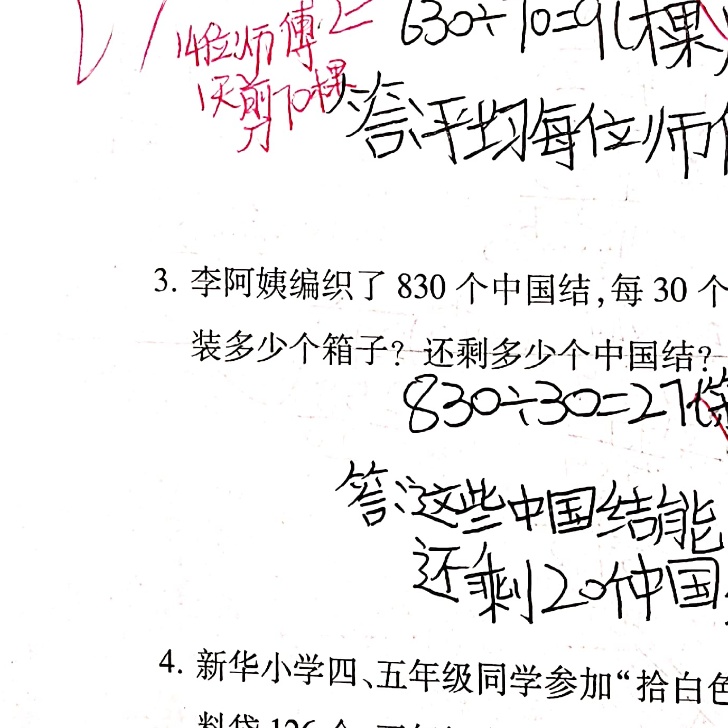 630÷70=9(棵)
14位师傅
1天剪70棵
答:平均每位师
3. 李阿姨编织了 830 个中国结,每 30 个
装多少个箱子?还剩多少个中国结?
830÷30=27(
答:这些中国结能
还剩20个中国
4. 新华小学四、五年级同学参加“拾白色
料袋 126 个